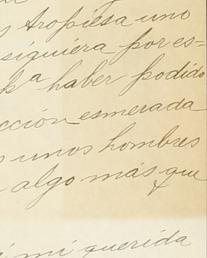 s tropiesa uno
siquiera por es-
kª haber podido
cción esmerada
s unos hombres
algo más que
mi querida